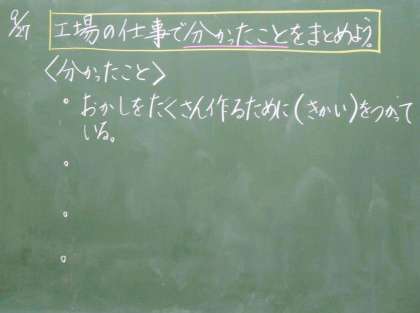 9/27
工場の仕事で分かったことをまとめよう。
〈分かったこと〉
・おかしをたくさん作るために(きかい)をつかって
いる。
・
・
・